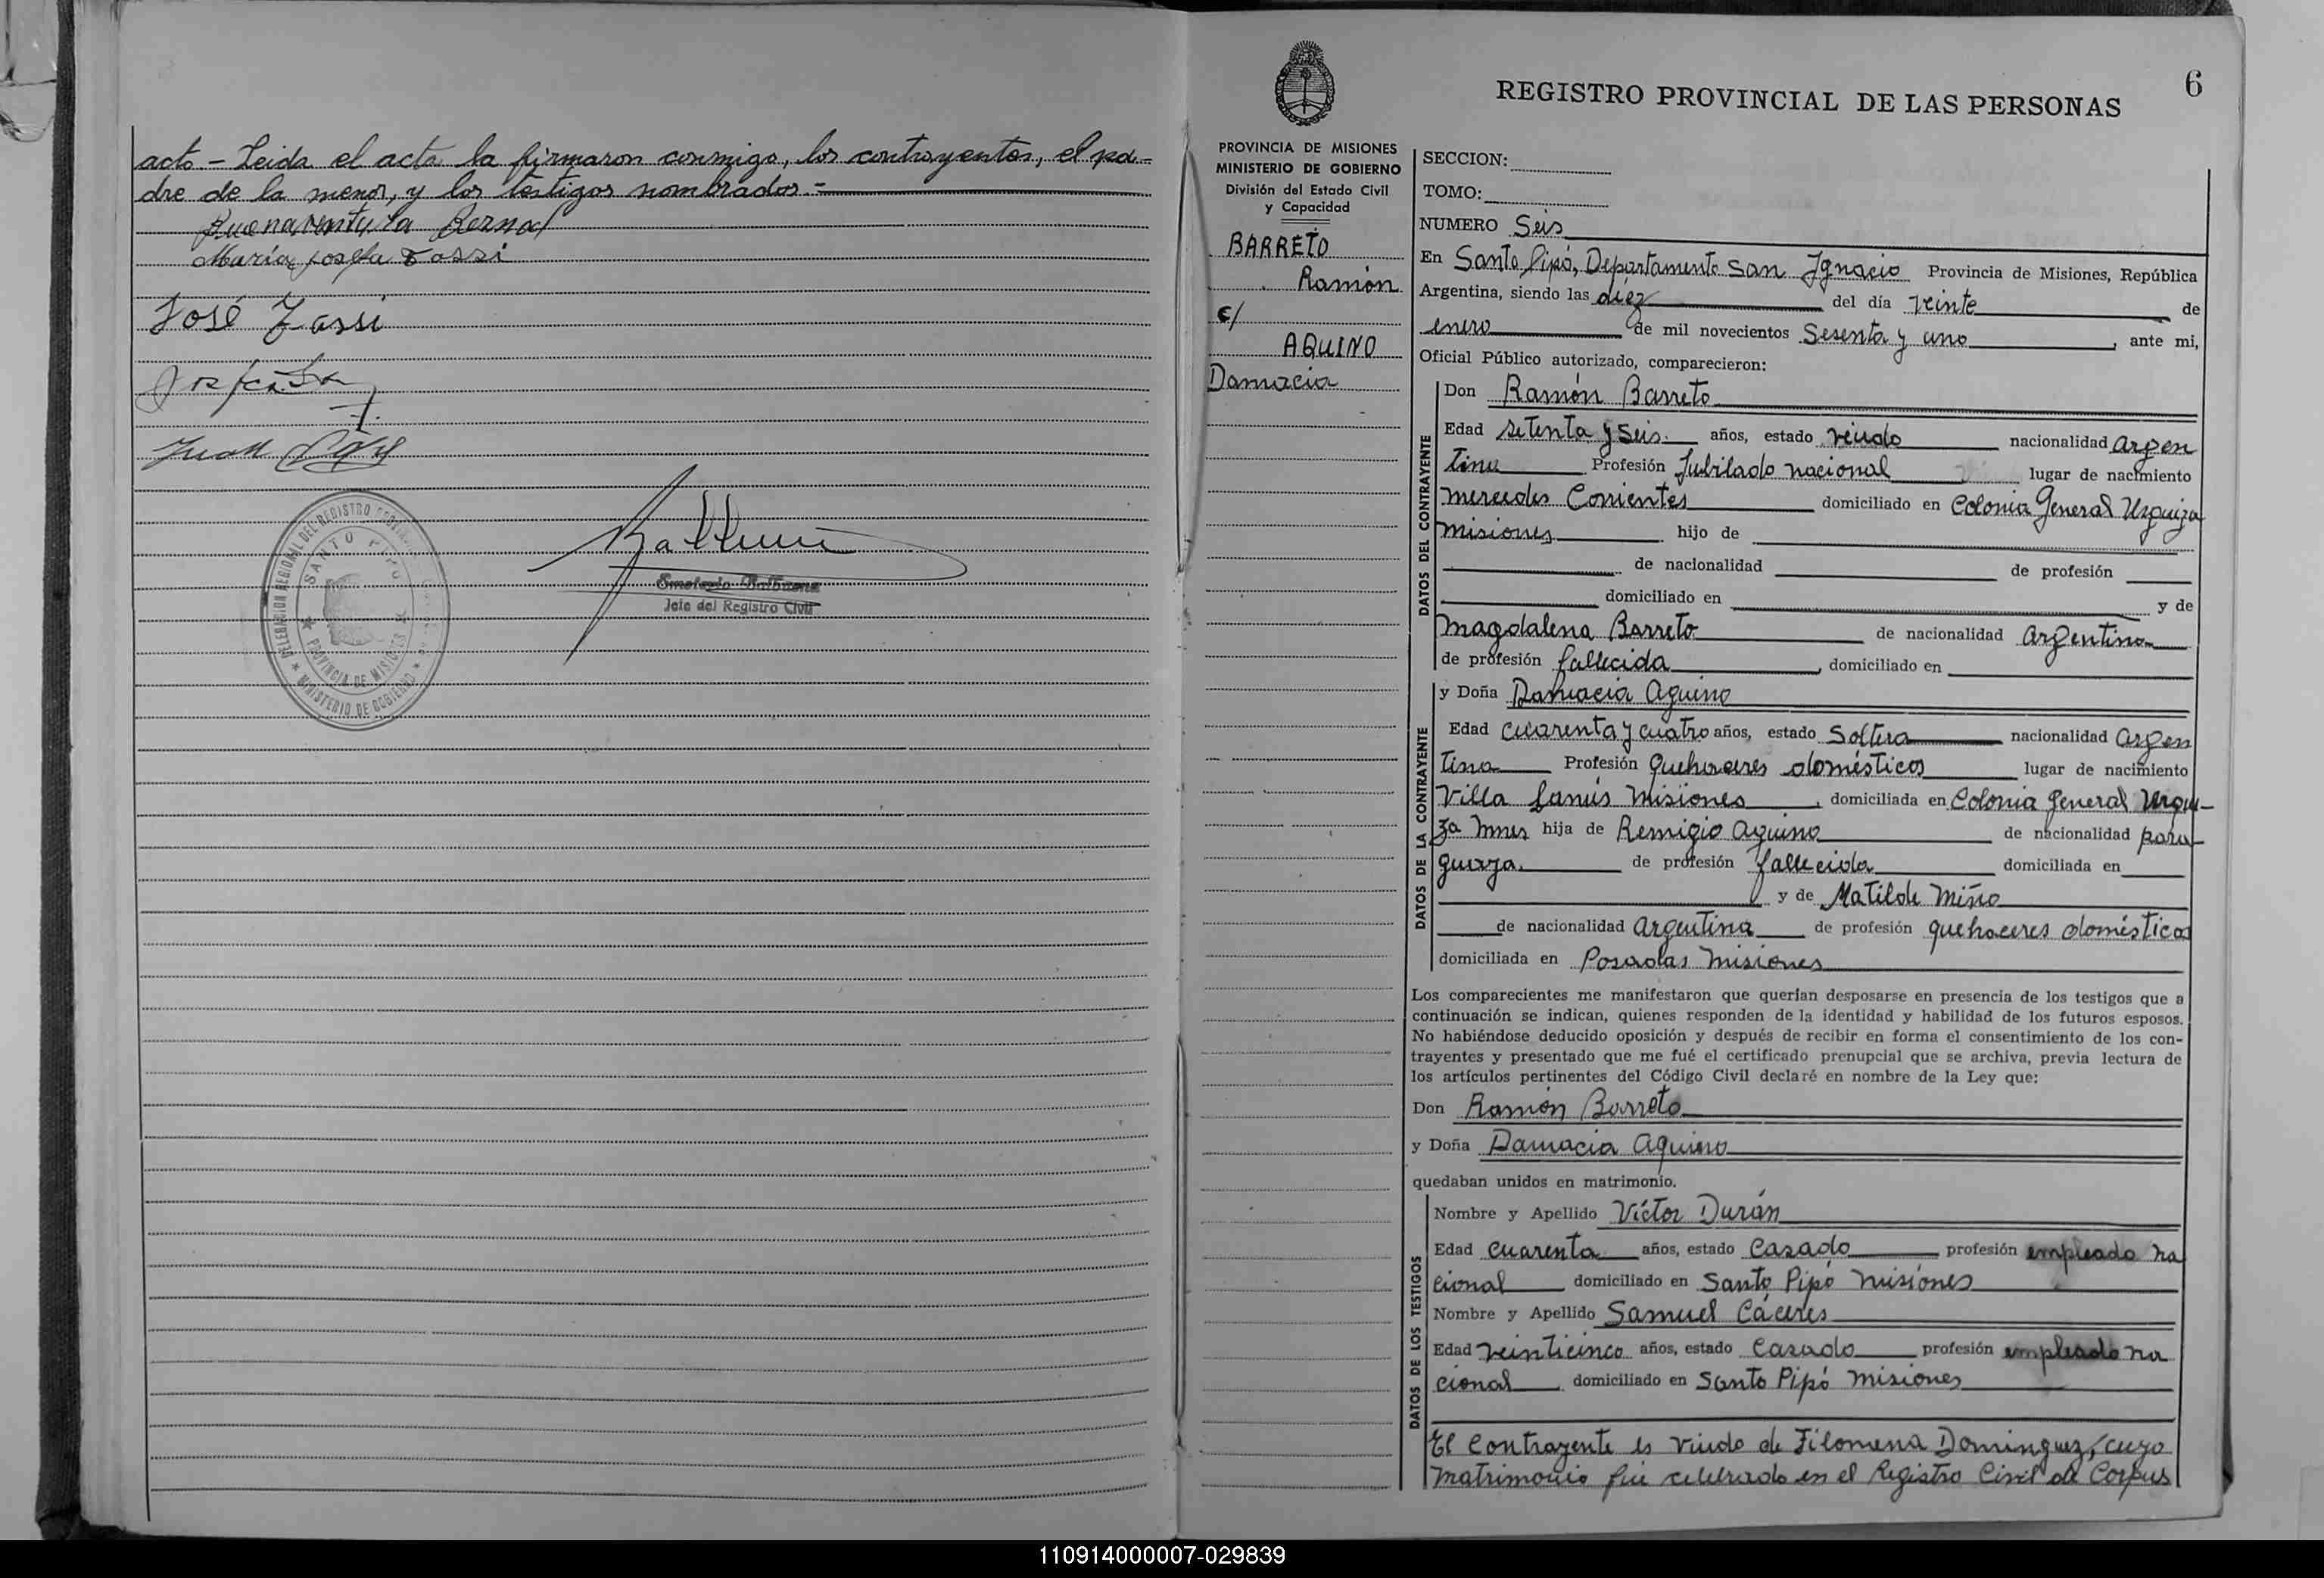 acto - Leida el acta la firmaron conmigo, los contrayentes, el pa-
dre de la menor, y los testigos nombrados.-
Buenaventura Bernal
María Josefa Tassi
José Tassi
Juan
DELEGACION REGIONAL DEL REGISTRO PROVINCIAL
SANTO PIPO
PROVINCIA DE MISIONES
MINISTERIO DE GOBIERNO
Emeterio Balbuena
Jefe del Registro Civil
6
REGISTRO PROVINCIAL DE LAS PERSONAS
PROVINCIA DE MISIONES
MINISTERIO DE GOBIERNO
División del Estado Civil
y Capacidad
BARRETO
Ramón
c/
AQUINO
Damacia
SECCION:
TOMO:
NUMERO Seis
En Santo Pipó, Departamento San Ignacio Provincia de Misiones, República
Argentina, siendo las diez del día veinte de
enero de mil novecientos Sesenta y uno, ante mi,
Oficial Público autorizado, comparecieron:
DATOS DEL CONTRAYENTE
Don Ramón Barreto
Edad setenta y seis años, estado viudo nacionalidad argen
tina Profesión Jubilado nacional lugar de nacimiento
mercedes Corrientes domiciliado en Colonia General Urquiza
misiones hijo de
de nacionalidad de profesión
domiciliado en y de
Magdalena Barreto de nacionalidad argentina
de profesión fallecida, domiciliado en
DATOS DE LA CONTRAYENTE
y Doña Damacia Aquino
Edad cuarenta y cuatro años, estado Soltera nacionalidad argen
tina Profesión Quehaceres domésticos lugar de nacimiento
Villa Lanús Misiones, domiciliada en Colonia General Urqui-
za Mnes hija de Remigio Aquino de nacionalidad para-
guaya. de profesión fallecida domiciliada en
y de Matilde Miño
de nacionalidad argentina de profesión quehaceres domésticos
domiciliada en Posadas Misiones
Los comparecientes me manifestaron que querían desposarse en presencia de los testigos que a
continuación se indican, quienes responden de la identidad y habilidad de los futuros esposos.
No habiéndose deducido oposición y después de recibir en forma el consentimiento de los con-
trayentes y presentado que me fué el certificado prenupcial que se archiva, previa lectura de
los artículos pertinentes del Código Civil declaré en nombre de la Ley que:
Don Ramón Barreto
y Doña Damacia Aquino
quedaban unidos en matrimonio.
DATOS DE LOS TESTIGOS
Nombre y Apellido Víctor Durán
Edad cuarenta años, estado Casado profesión empleado na
cional domiciliado en Santo Pipó Misiones
Nombre y Apellido Samuel Cáceres
Edad veinticinco años, estado Casado profesión empleado na
cional domiciliado en Santo Pipó Misiones
El contrayente es viudo de Filomena Dominguez, cuyo
matrimonio fué celebrado en el Registro Civil de Corpus
110914000007-029839